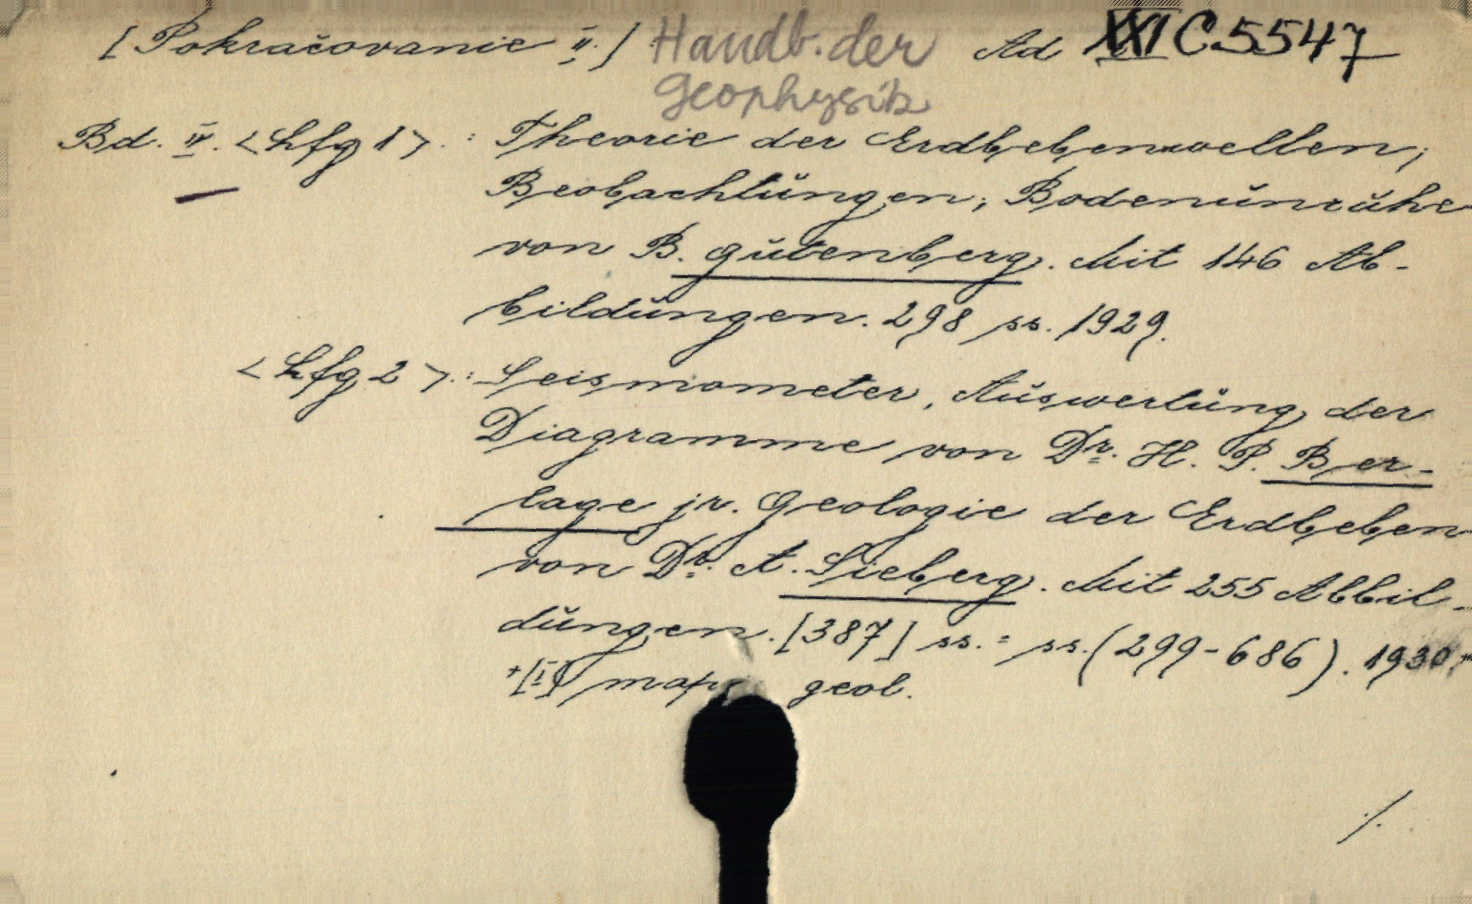 [Pokračovanie II.] Handb. der Ad XXI C 5547
Geophysik
Bd. IV. <Lfg 1>.: Theorie der Erdbebenwellen;
Beobachtŭngen; Bodenŭnrŭhe
von B. Gŭtenberg. Mit 146 Ab-
bildŭngen. 298 ss. 1929.
<Lfg 2>.: Seismometer, Aŭswertŭng der
Diagramme von Dr. H. P. Ber-
lage jr. Geologie der Erdbeben
von Dr. A. Sieberg. Mit 255 Abbil-
dŭngen. [387] ss. = ss. (299-686). 1930.
+[I] map geol.
./.